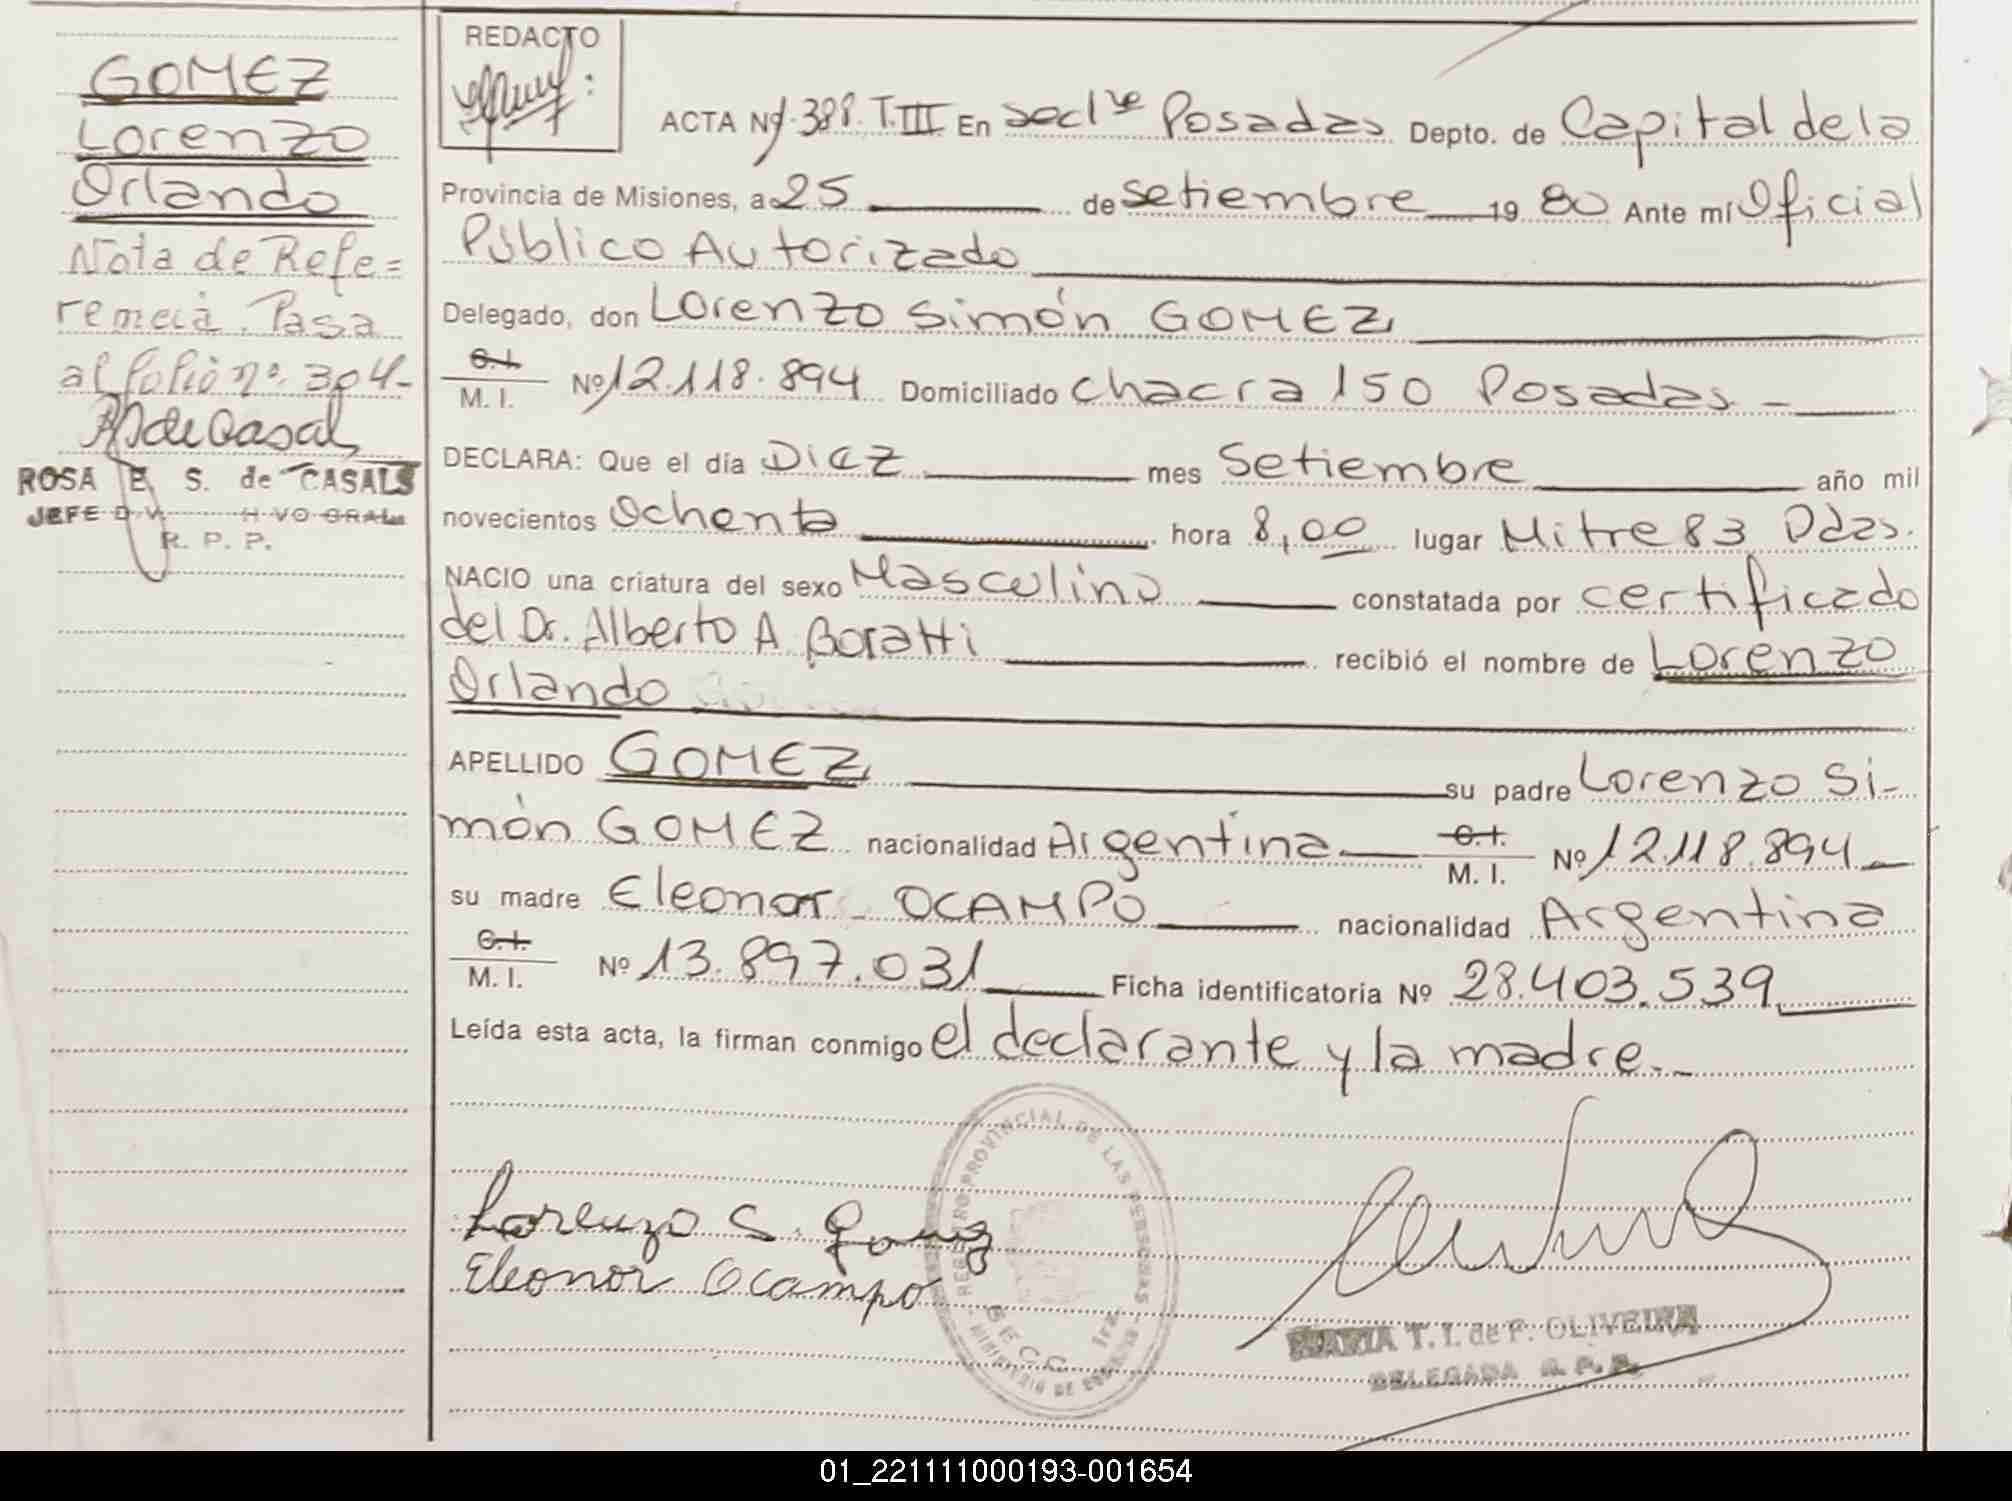 GOMEZ
Lorenzo
Orlando
Nota de Refe=
rencia. Pasa
al folio nº. 304-
RSdeCasals
ROSA E. S. de CASALS
JEFE DIV. ARCHIVO GRAL.
R. P. P.
REDACTO
ACTA Nº 388. T. III En secc 1ra Posadas Depto. de Capital de la
Provincia de Misiones, a 25 de setiembre 19 80 Ante mí Oficial
Público Autorizado
Delegado, don Lorenzo Simón GOMEZ
C.I.
M. I. Nº 12.118.894 Domiciliado chacra 150 Posadas -
DECLARA: Que el día DIEZ mes Setiembre año mil
novecientos Ochenta hora 8,00 lugar Mitre 83 Pdas.
NACIO una criatura del sexo Masculino constatada por certificado
del Dr. Alberto A. Boratti recibió el nombre de Lorenzo
Orlando
APELLIDO GOMEZ su padre Lorenzo Si-
món GOMEZ nacionalidad Argentina C.I.
M. I. Nº 12.118.894
su madre Eleonor OCAMPO nacionalidad Argentina
C.I.
M. I. Nº 13.897.031 Ficha identificatoria Nº 28.403.539
Leída esta acta, la firman conmigo el declarante y la madre.-
Lorenzo S. Gomez
Eleonor Ocampo
REGISTRO PROVINCIAL DE LAS PERSONAS
SECC. 1ra.
MINISTERIO DE GOBIERNO
MARIA T. I. de F. OLIVEIRA
DELEGADA R. P. P.
01_221111000193-001654